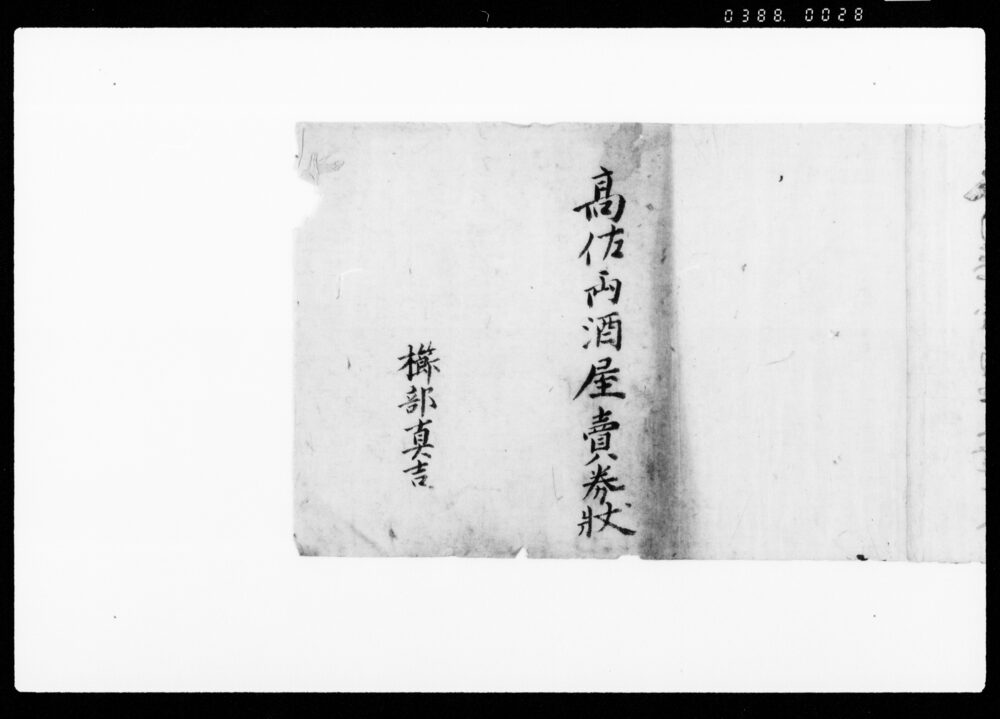 0388. 0028
高佐両酒屋賣券状
櫛部真吉